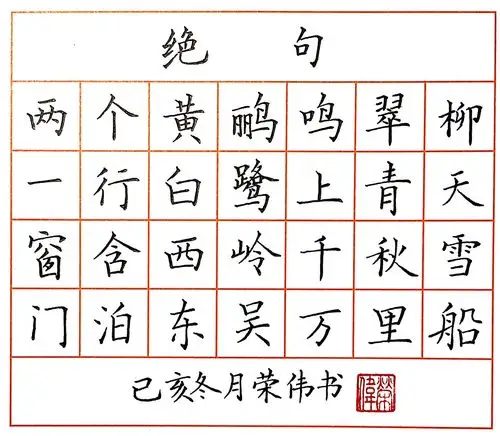 绝句
两个黄鹂鸣翠柳
一行白鹭上青天
窗含西岭千秋雪
门泊东吴万里船
己亥冬月荣伟书
荣伟